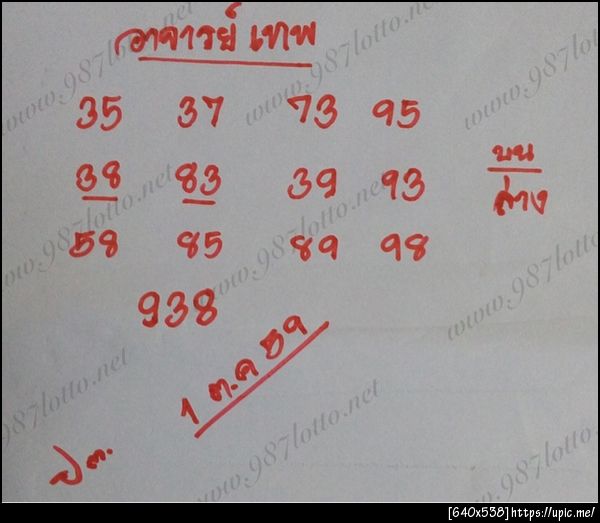 อาจารย์ เทพ
35 37 73 95
38 83 39 93
บน
ล่าง
58 85 89 98
938
1 ต.ค 59
www.987lotto.net
www.987lotto.net
www.987lotto.net
www.987lotto.net
www.987lotto.net
www.987lotto.net
www.987lotto.net
[640x538]https://upic.me/